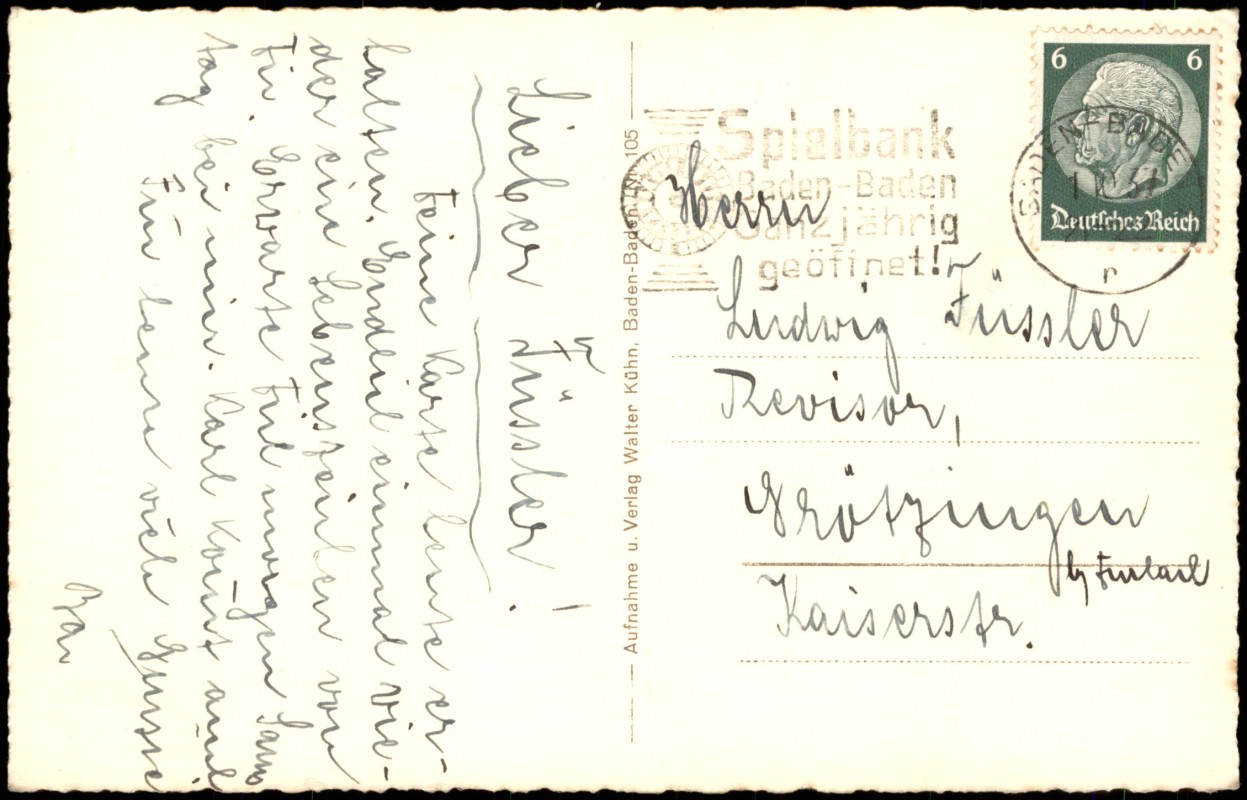 Lieber Füssler!
Deine Karte heute er-
halten. Endlich einmal wie-
der ein Lebenszeichen von
Dir. Erwarte Dich morgen Sams
tag bei mir. Karl kom̄t auch
Für heute viele Grüsse
Aufnahme u. Verlag Walter Kühn, Baden-Baden 105
Spielbank
Baden-Baden
Ganzjährig
geöffnet!
6 6
Deutsches Reich
BADEN-BADEN
r
Herrn
Ludwig Füssler
Revisor,
Grötzingen
b/ Durlach
Kaiserstr.